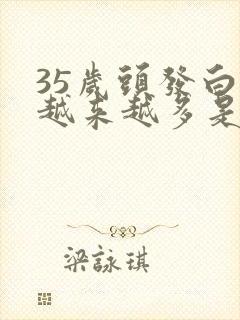 35歲頭發白
越來越多是
梁詠琪